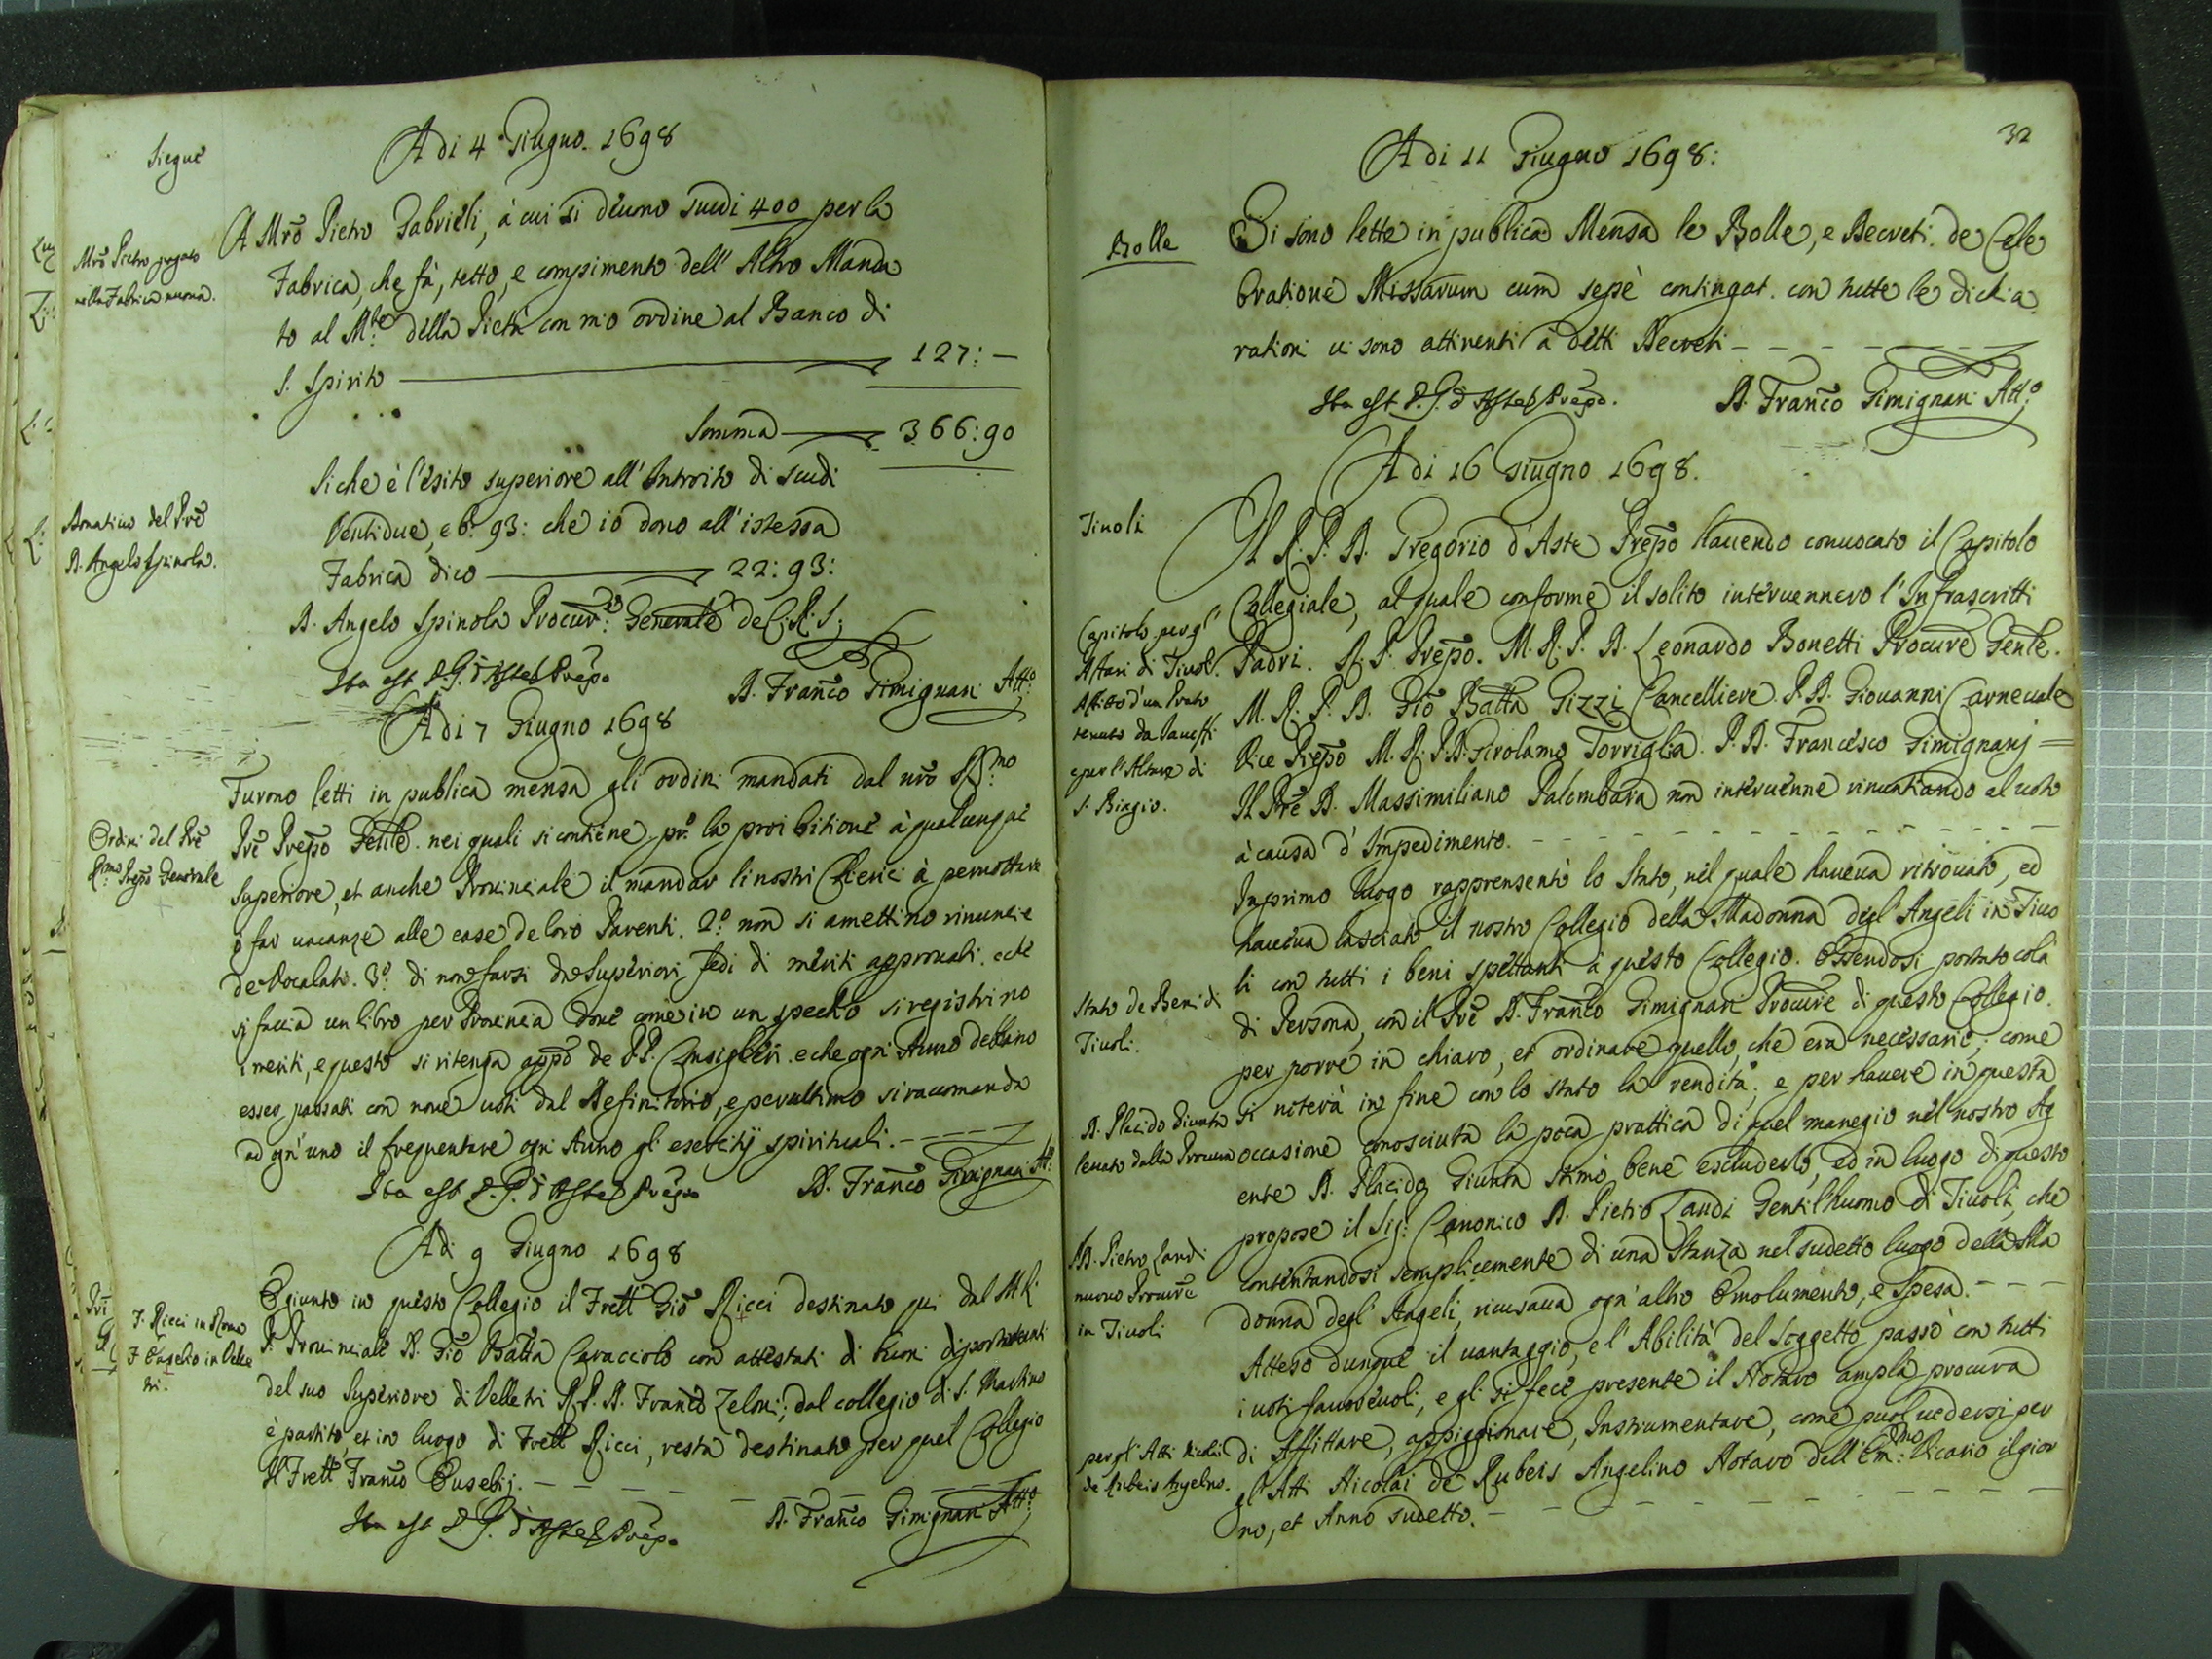 Siegue
Adi 4 Giugno. 1698
Mrõ Pietro pagato
nella Fabrica nuova.
A Mrõ Pietro Gabrieli, à cui si deuono scudi 400 per la
Fabrica, che fà, tetto, e compimento dell' Altro Manda
to al M.te della Pietà con mio ordine al Banco di
S. Spirito 127: —
Somma 366:90
Donatiuo del Prẽ
D. Angelo Spinola.
Siche è l'esito superiore all' Introito di scudi
Ventidue, e b. 93: che io dono all' istessa
Fabrica dico 22:93:
D. Angelo Spinola Procur.re Generale de C. R. S.
Ita est D. G. d'Aste Prẽpo
D. Franco Gimignani Att.o
Adi 7 Giugno 1698
Ordini del Prẽ
R.mo Prepo Generale
Furono letti in publica mensa gli ordini mandati dal nrõ R.mo
Prẽ Prepo Genle. nei quali si contiene pr.o la proibitione à qualunque
Superiore, et anche Prouinciale il mandar li nostri Chierici à pernottare
ò far uacanze alle case de loro Parenti. 2.o non si amettino rinuncie
de Vocalati. 3.o di non farsi da Superiori fedi di meriti approuati. e che
si faccia un libro per Prouincia doue come in un specchio si registrino
i meriti, e questo si ritenga appõ de P.P. Consiglieri. e che ogni Anno debbano
esser passati con noue uoti dal Definitorio, e per ultimo si racomanda
ad ogn' uno il frequentare ogni Anno gli esercitij spirituali.
Ita est D. G. d'Aste Prẽpo
D. Franco Gimignani At.o
Adi 9 Giugno 1698
F. Ricci in Roma
F. Eusebio in Velle
tri.
È giunto in questo Collegio il Fratt Giõ Ricci destinato qui dal M. R.
P. Prouinciale D. Giõ Batta Caracciolo con attestati di buoni diportamenti
del suo Superiore di Velletri R. P. D. Franco Zeloni; dal collegio di S. Martino
è partito, et in luogo di Fratt Ricci, resta destinato per quel Collegio
Il Fratt Franco Eusebij.
Ita est D. G. d'Aste Prẽpo
D. Franco Gimignani Att.o
32
Adi 11 Giugno 1698:
Bolle
Si sono lette in publica Mensa le Bolle, e Decreti. de Cele
bratione Missarum cum sepè contingat. con tutte le dichia
rationi ui sono attinenti à detti Decreti
Ita est D. G. d'Aste Prẽpo.
D. Franco Gimignani Att.o
Adi 16 Giugno 1698.
Tiuoli
Il R. P. D. Gregorio d'Aste Prepo hauendo conuocato il Capitolo
Collegiale, al quale conforme il solito interuennero l' Infrascritti
Capitolo per gl'
Affari di Tiuoli.
Affitto d'un Prato
tenuto da
e per l'Altare di
S. Biagio.
Padri. R. P. Prepo. M. R. P. D. Leonardo Bonetti Procure Genle.
M. R. P. D. Giõ Batta Gizzi Cancelliere. P. D. Giouanni Carneuale
Vice Prepo M. R. P. D. Girolamo Torriglia. P. D. Francesco Gimignanj =
Il Prẽ D. Massimiliano Palombara non interuenne rinuntiando al uoto
à causa d' Impedimento.
Inprimo luogo rapprensentò lo Stato, nel quale haueua ritrouato, ed
haueua lasciato il nostro Collegio della Madonna degl' Angeli in Tiuo
li con tutti i beni spettanti à questo Collegio. Essendosi portato colà
Stato de Beni di
Tiuoli.
di Persona, con il Prẽ D. Franco Gimignani Procure di questo Collegio.
per porre in chiaro, et ordinare quello, che era necessario; come
si noterà in fine con lo stato la rendita; e per hauere in questa
D. Placido Giunta
leuato dalla Procura
occasione conosciuta la poca prattica di quel manegio nel nostro Ag
ente D. Placido Giunta stimò bene escluderlo, ed in luogo di questo
propose il Sig: Canonico D. Pietro Landi Gentil'huomo di Tiuoli, che
D. Pietro Landi
nuouo Procure
in Tiuoli
contentandosi semplicemente di una Stanza nel sudetto luogo della Ma
donna degl' Angeli, ricusaua ogn' altro Emolumento, e spesa.
Atteso dunque il uantaggio, e l' Abilità del Soggetto passò con tutti
i uoti fauoreuoli, e gli si fece presente il Notaro ampla procura
per gl' Atti Nicolai
de Rubeis Angelino.
di Affittare, appiggionare, Instrumentare, come puol uedersi per
gl' Atti Nicolai de Rubeis Angelino Notaro dell' Em.mo Vicario il gior
no, et Anno sudetto.